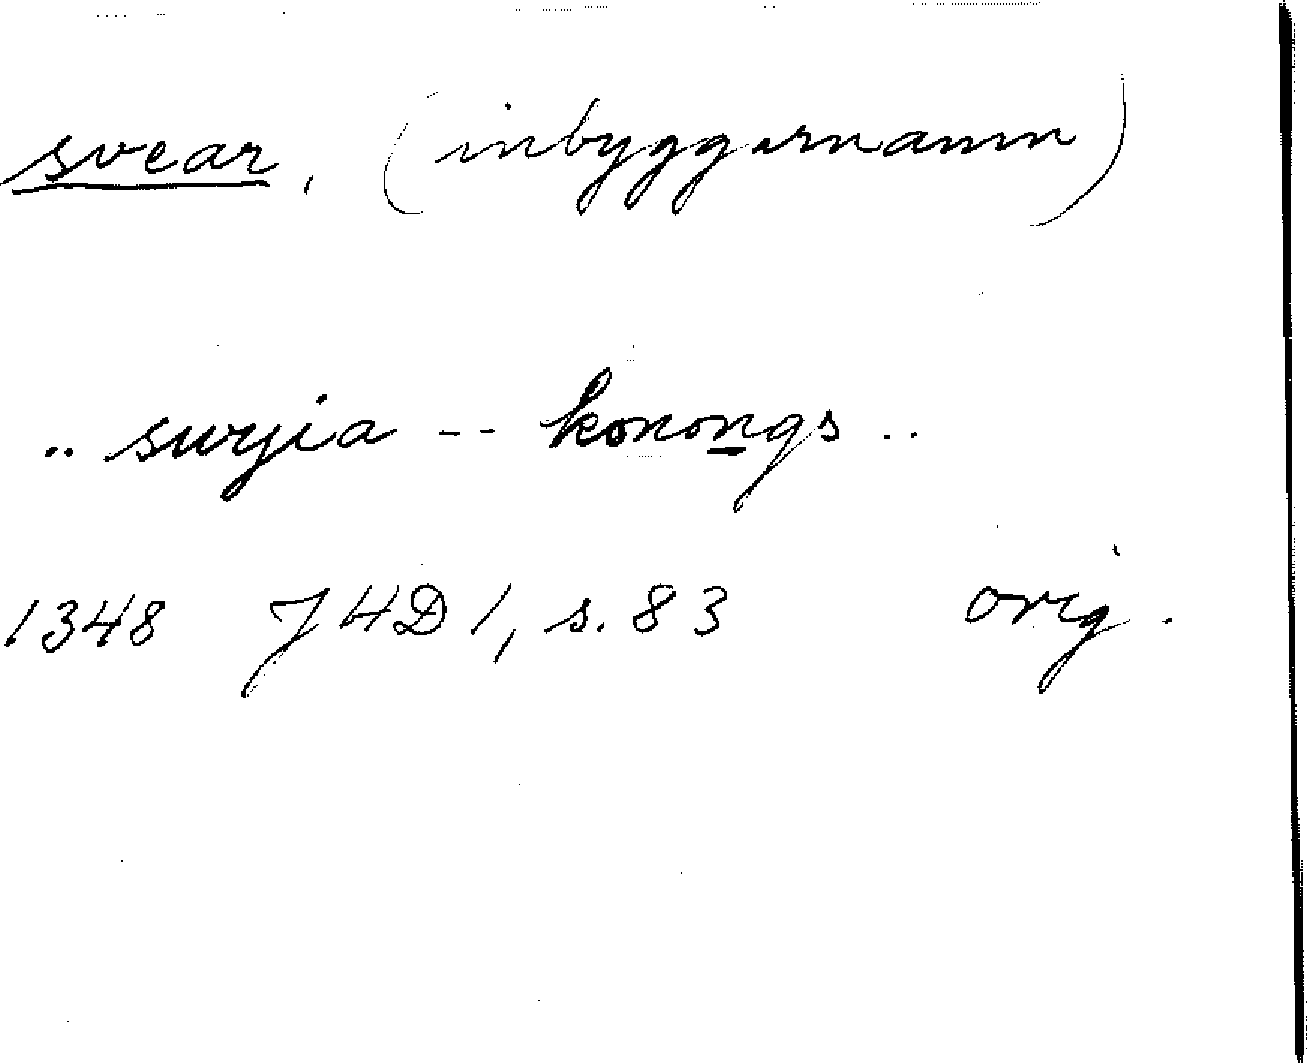 svear, (inbyggarnamn)
.. swyia -- konongs ..
1348 JHD 1, s. 83 orig.